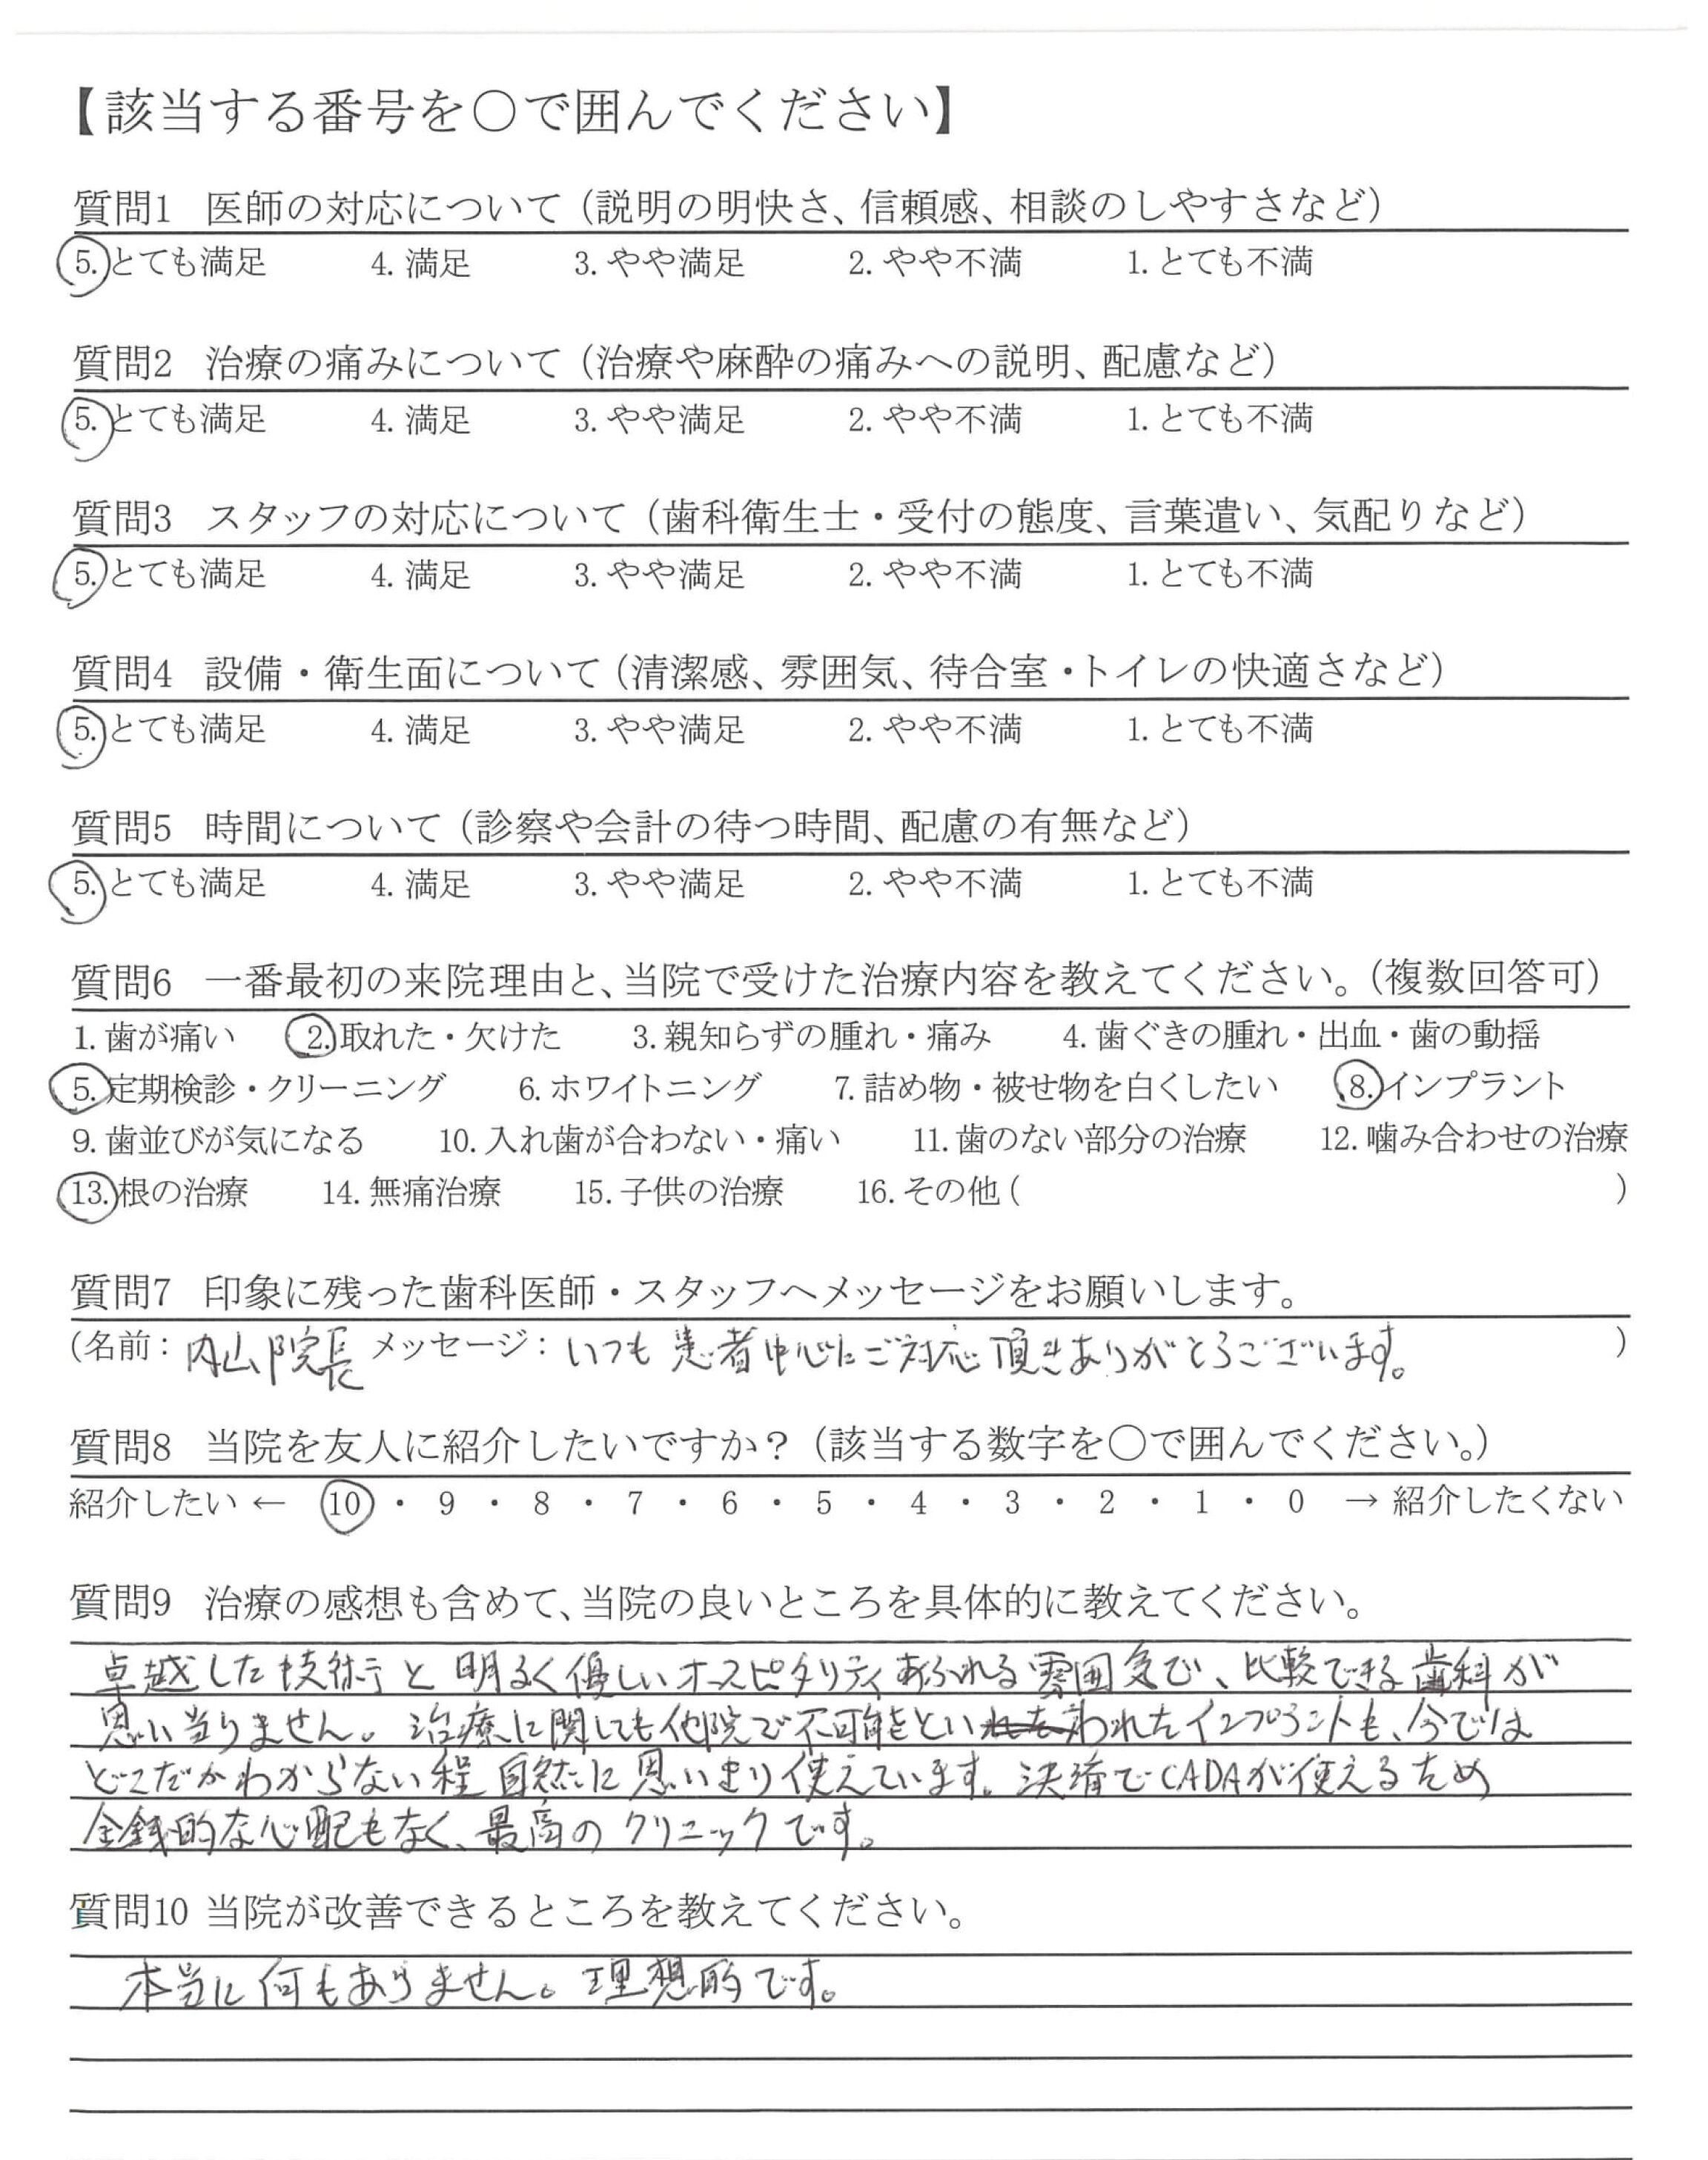 【該当する番号を〇で囲んでください】
質問1 医師の対応について（説明の明快さ、信頼感、相談のしやすさなど）
5.とても満足 4.満足 3.やや満足 2.やや不満 1.とても不満
質問2 治療の痛みについて（治療や麻酔の痛みへの説明、配慮など）
5.とても満足 4.満足 3.やや満足 2.やや不満 1.とても不満
質問3 スタッフの対応について（歯科衛生士・受付の態度、言葉遣い、気配りなど）
5.とても満足 4.満足 3.やや満足 2.やや不満 1.とても不満
質問4 設備・衛生面について（清潔感、雰囲気、待合室・トイレの快適さなど）
5.とても満足 4.満足 3.やや満足 2.やや不満 1.とても不満
質問5 時間について（診察や会計の待つ時間、配慮の有無など）
5.とても満足 4.満足 3.やや満足 2.やや不満 1.とても不満
質問6 一番最初の来院理由と、当院で受けた治療内容を教えてください。（複数回答可）
1.歯が痛い 2.取れた・欠けた 3.親知らずの腫れ・痛み 4.歯ぐきの腫れ・出血・歯の動揺
5.定期検診・クリーニング 6.ホワイトニング 7.詰め物・被せ物を白くしたい 8.インプラント
9.歯並びが気になる 10.入れ歯が合わない・痛い 11.歯のない部分の治療 12.噛み合わせの治療
13.根の治療 14.無痛治療 15.子供の治療 16.その他（ ）
質問7 印象に残った歯科医師・スタッフへメッセージをお願いします。
（名前：内山院長 メッセージ：いつも患者中心にご対応頂きありがとうございます。 ）
質問8 当院を友人に紹介したいですか？（該当する数字を〇で囲んでください。）
紹介したい ← 10 ・ 9 ・ 8 ・ 7 ・ 6 ・ 5 ・ 4 ・ 3 ・ 2 ・ 1 ・ 0 → 紹介したくない
質問9 治療の感想も含めて、当院の良いところを具体的に教えてください。
卓越した技術と明るく優しいホスピタリティあふれる雰囲気で、比較できる歯科が
思い当りません。治療に関しても他院で不可能といわれたインプラントも、今では
どこだかわからない程自然に思いきり使えています。決済でCADAが使えるため
金銭的な心配もなく、最高のクリニックです。
質問10 当院が改善できるところを教えてください。
本当に何もありません。理想的です。